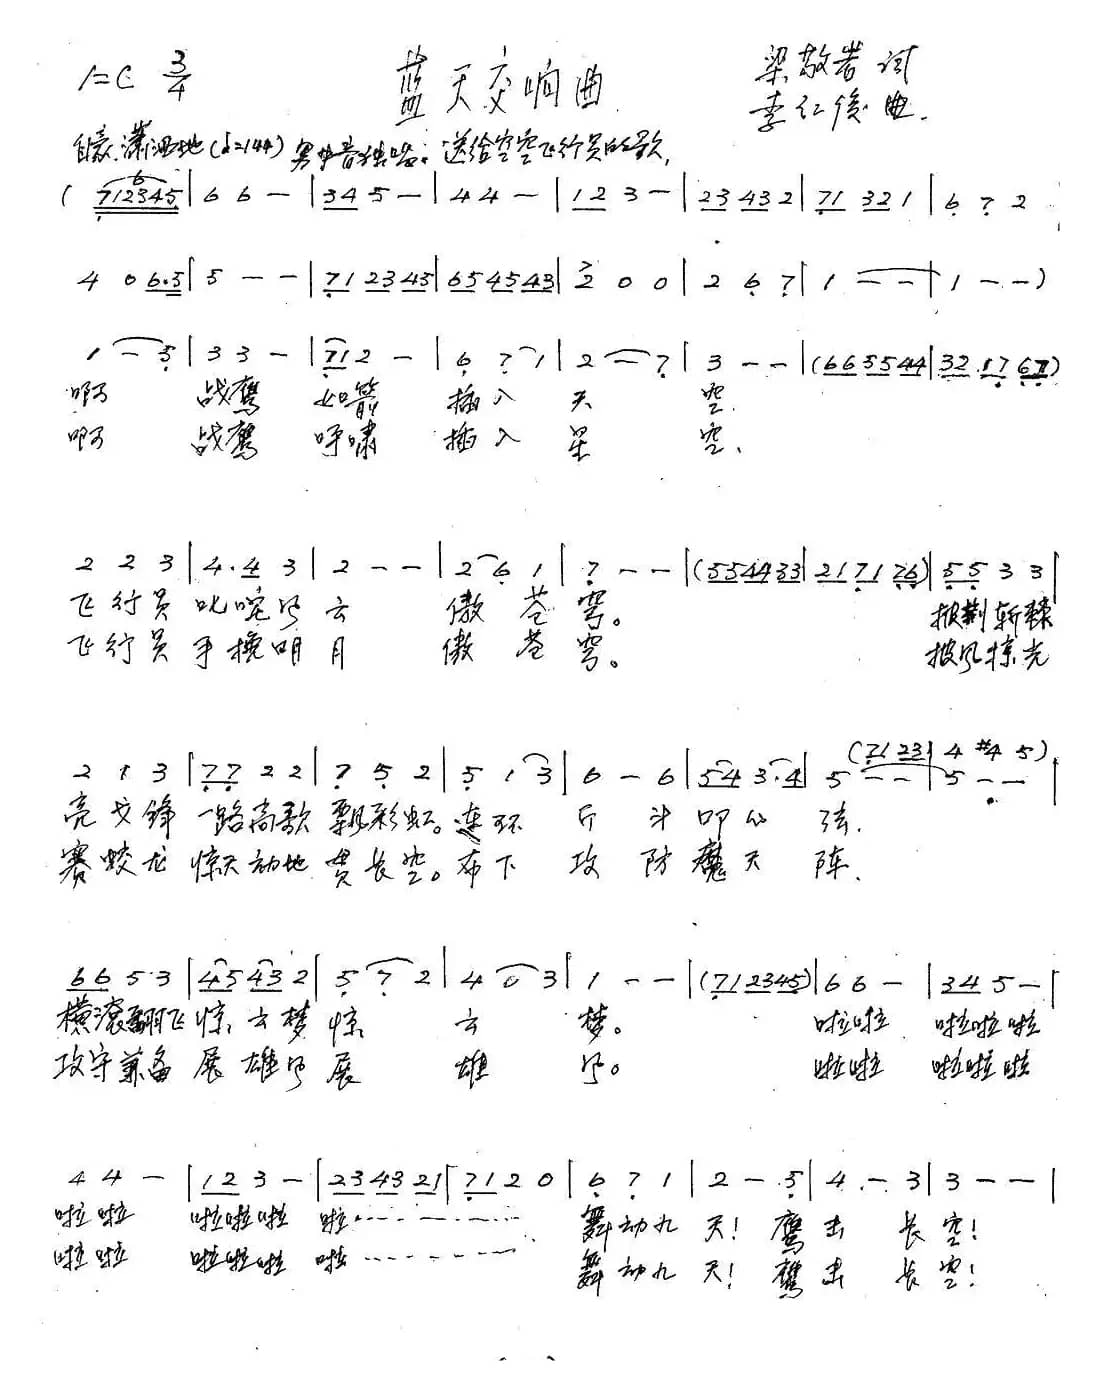 1=C 3/4 蓝天交响曲 梁敬岩 词
李红俊 曲.
自豪.潇洒地(♩=144) 男中音独唱: 送给空空飞行员的歌,
( 712345 | 6 6 - | 34 5 - | 4 4 - | 12 3 - | 23 43 2 | 71 321 | 6 7 2
4 0 6.5 | 5 - - | 71 23 45 | 65 45 43 | 2 0 0 | 2 6 7 | 1 - - | 1 - - )
1 - 5 | 3 3 - | 71 2 - | 6 7 1 | 2 - 7 | 3 - - | (66 55 44 | 32 17 67)
啊 战鹰 如箭 插入 天 空.
啊 战鹰 呼啸 插入 星 空、
2 2 3 | 4.4 3 | 2 - - | 2 6 1 | 7 - - | (55 44 33 | 21 71 76) | 55 3 3 |
飞行员 叱咤风 云 傲 苍 穹。 披荆斩棘
飞行员 手挽明 月 傲 苍 穹。 披风惊光
(71 23 | 4 #4 5)
2 1 3 | 77 2 2 | 7 5 2 | 5 1 3 | 6 - 6 | 54 3.4 | 5 - - | 5 - - |
亮戈锋 一路高歌 飘彩虹。连环 斤 斗 叩心 弦.
赛蛟龙 惊天动地 贯长空。布下 攻 防魔天 阵.
66 5 3 | 45 43 2 | 5 7 2 | 4 0 3 | 1 - - | (71 23 45) | 6 6 - | 34 5 - |
横滚翻飞 惊云梦 惊 云 梦。 啦啦 啦啦啦
攻守兼备 展雄风 展 雄 风。 啦啦 啦啦啦
4 4 - | 12 3 - | 23 43 21 | 71 2 0 | 6 7 1 | 2 - 5 | 4 - 3 | 3 - - |
啦啦 啦啦啦 啦…………… 舞动九 天! 鹰击 长 空!
啦啦 啦啦啦 啦…………… 舞动九 天! 鹰击 长 空!